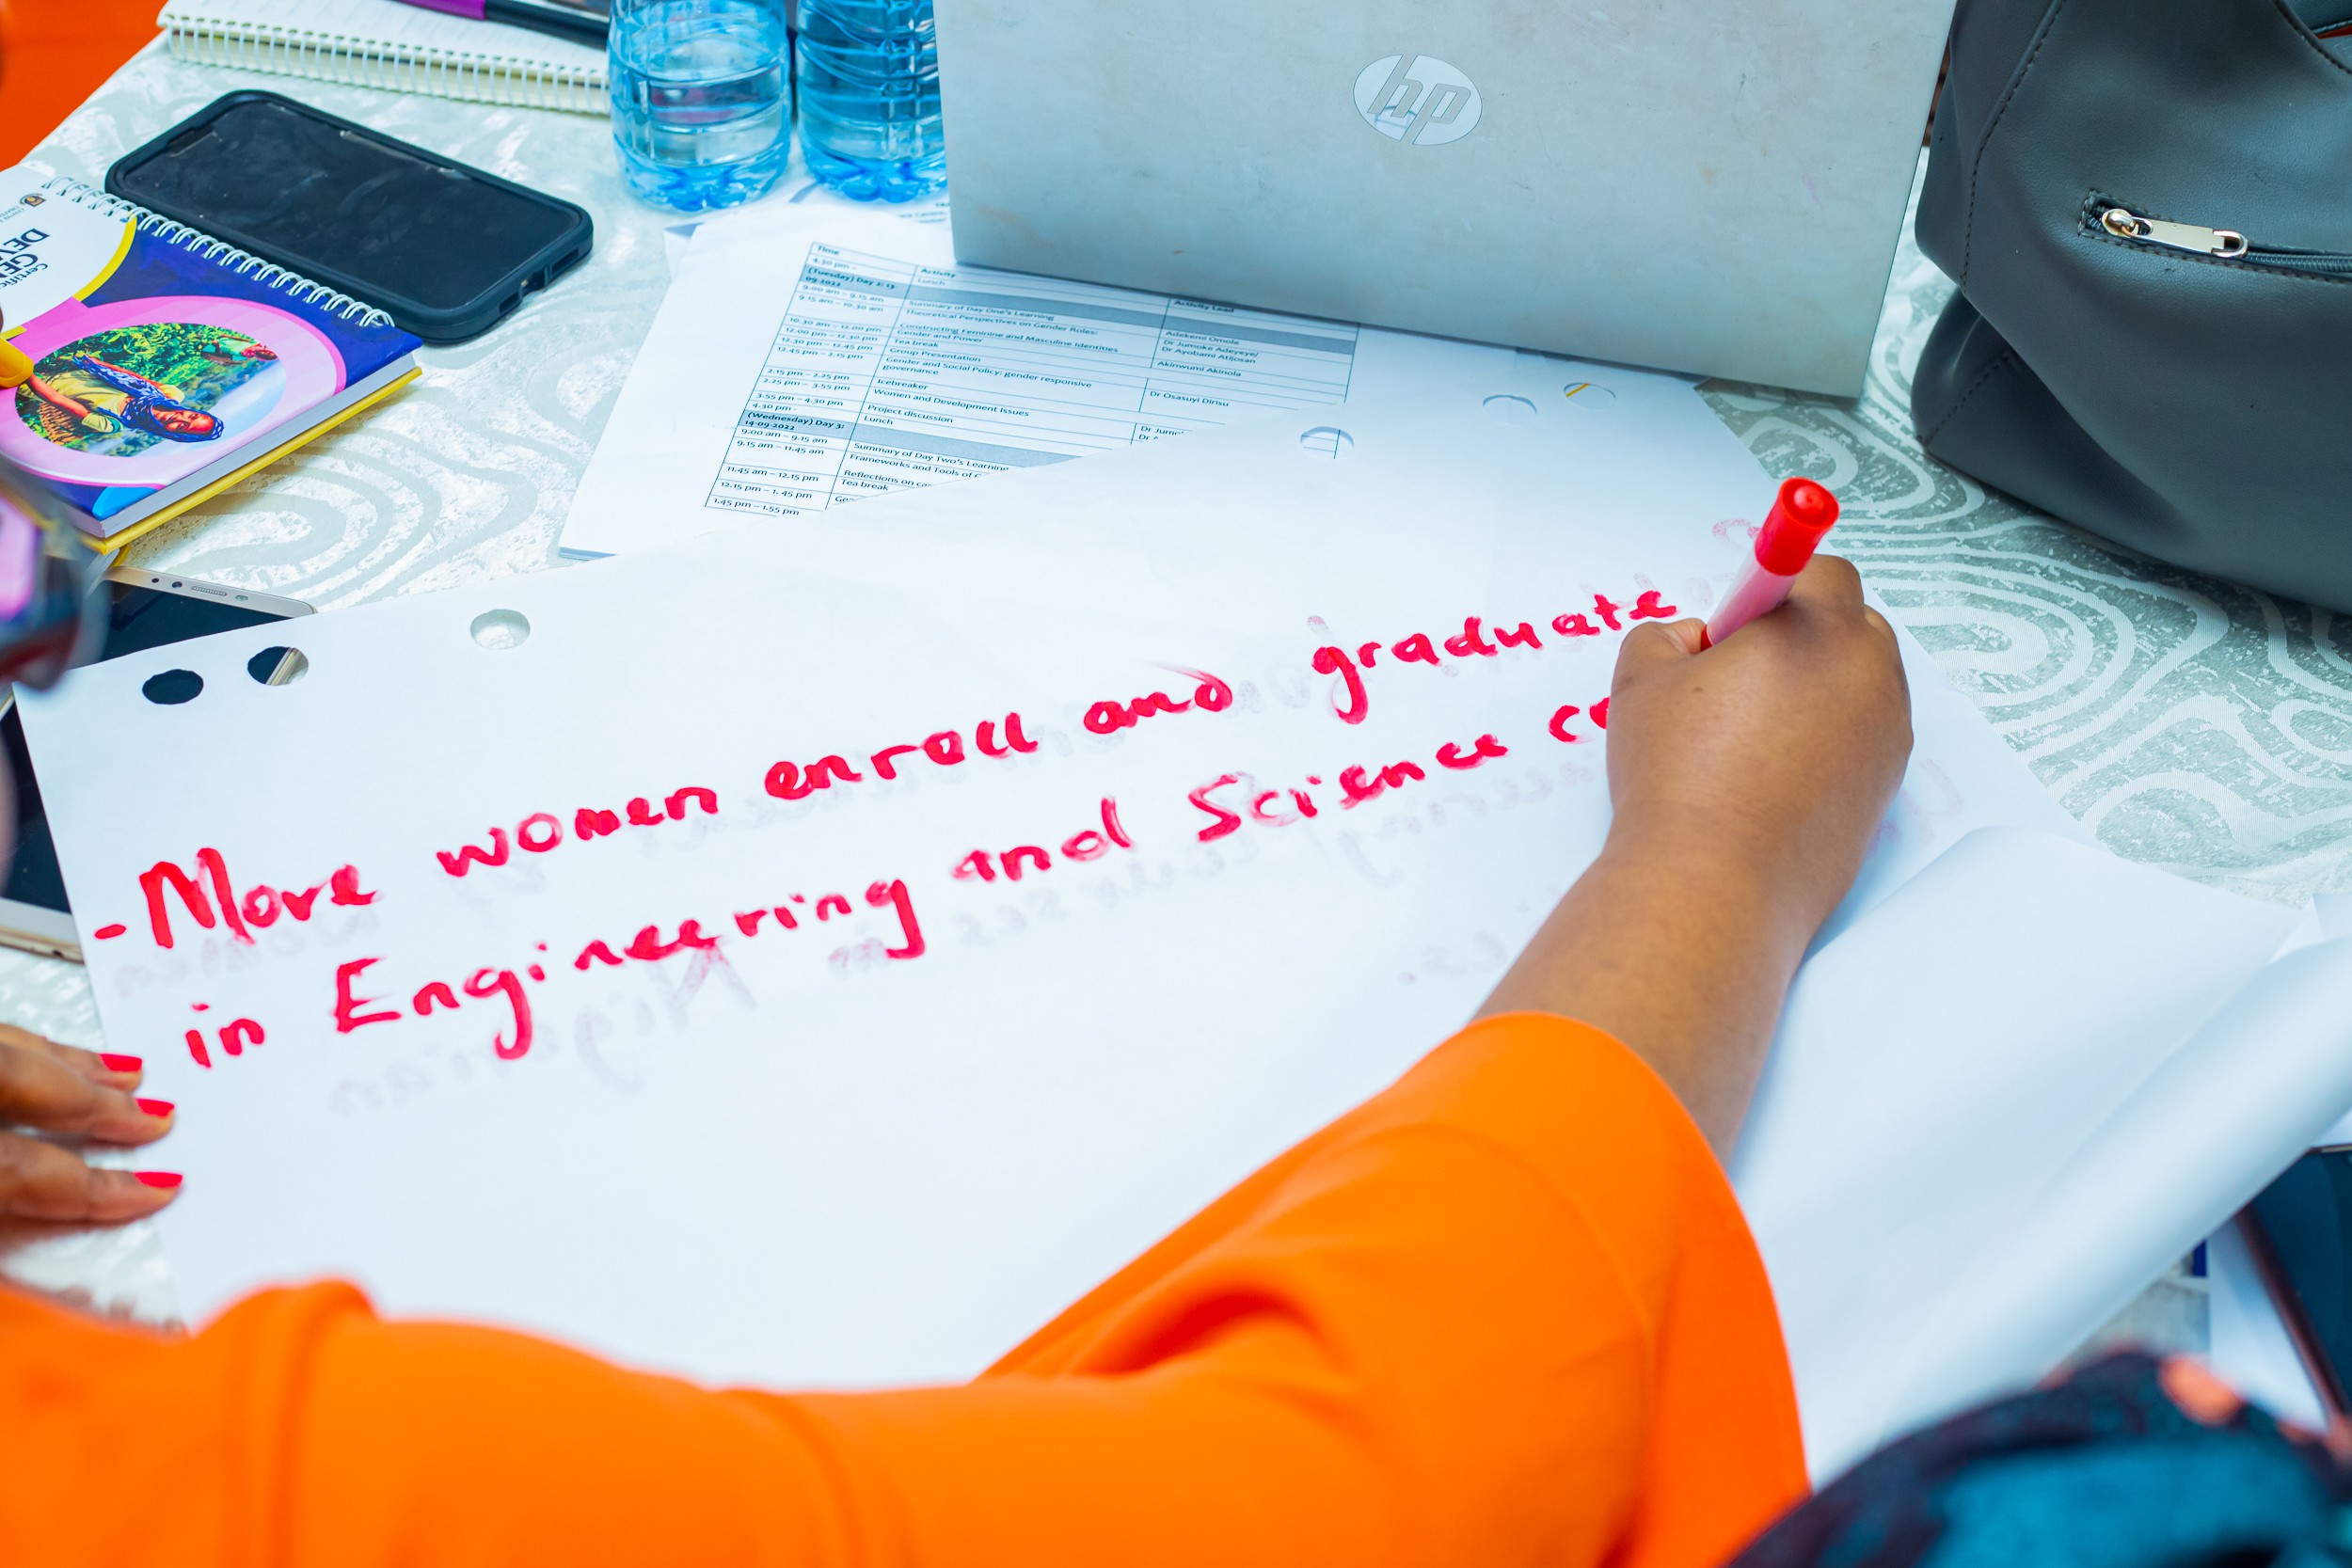 hp
Time
Activity
Activity Lead
4.30 pm -
Lunch
(Tuesday) Day 2: 13-
09-2022
9.00 am – 9.15 am
Summary of Day One's Learning
Adekemi Omole
9.15 am – 10.30 am
Theoretical Perspectives on Gender Roles:
Constructing Feminine and Masculine Identities
Dr Jumoke Adeyeye/
Dr Ayobami Atijosan
10.30 am – 12.00 pm
Gender and Power
12.00 pm – 12.30 pm
Tea break
12.30 pm – 12.45 pm
Group Presentation
Akinwumi Akinola
12.45 pm – 2.15 pm
Gender and Social Policy: gender responsive
governance
Dr Osasuyi Dirisu
2.15 pm – 2.25 pm
Icebreaker
2.25 pm – 3.55 pm
Women and Development Issues
3.55 pm – 4.30 pm
Project discussion
4.30 pm -
Lunch
(Wednesday) Day 3:
14-09-2022
9.00 am – 9.15 am
Summary of Day Two's Learning
9.15 am – 11.45 am
Frameworks and Tools of
Reflections on
11.45 am – 12.15 pm
Tea break
12.15 pm – 1.45 pm
1.45 pm – 1.55 pm
- More women enroll and graduate
in Engineering and Science